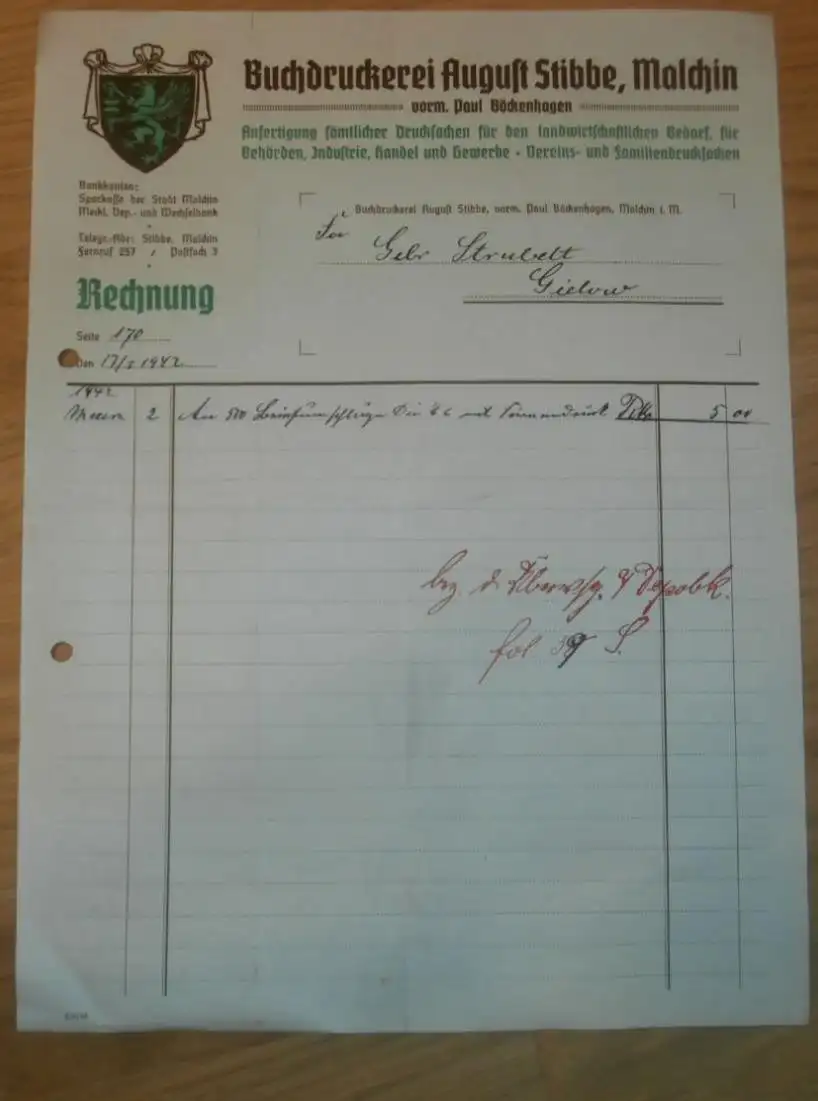 Buchdruckerei August Stibbe, Malchin
vorm. Paul Böckenhagen
Anfertigung sämtlicher Drucksachen für den landwirtschaftlichen Bedarf, für
Behörden, Industrie, Handel und Gewerbe - Vereins- und Familiendrucksachen
Bankkonten:
Sparkasse der Stadt Malchin
Meckl. Dep.- und Wechselbank
Telegr.-Adr: Stibbe, Malchin
Fernruf 257 / Postfach 3
Buchdruckerei August Stibbe, vorm. Paul Böckenhagen, Malchin i. M.
Fa
Gebr Strubelt
Gielow
Rechnung
Seite 170
Den 1942
1942
2 An 500 Briefumschläge Din mit Firmendruck 5 00
bez. d. Überwsg. Depobk.
fol S.